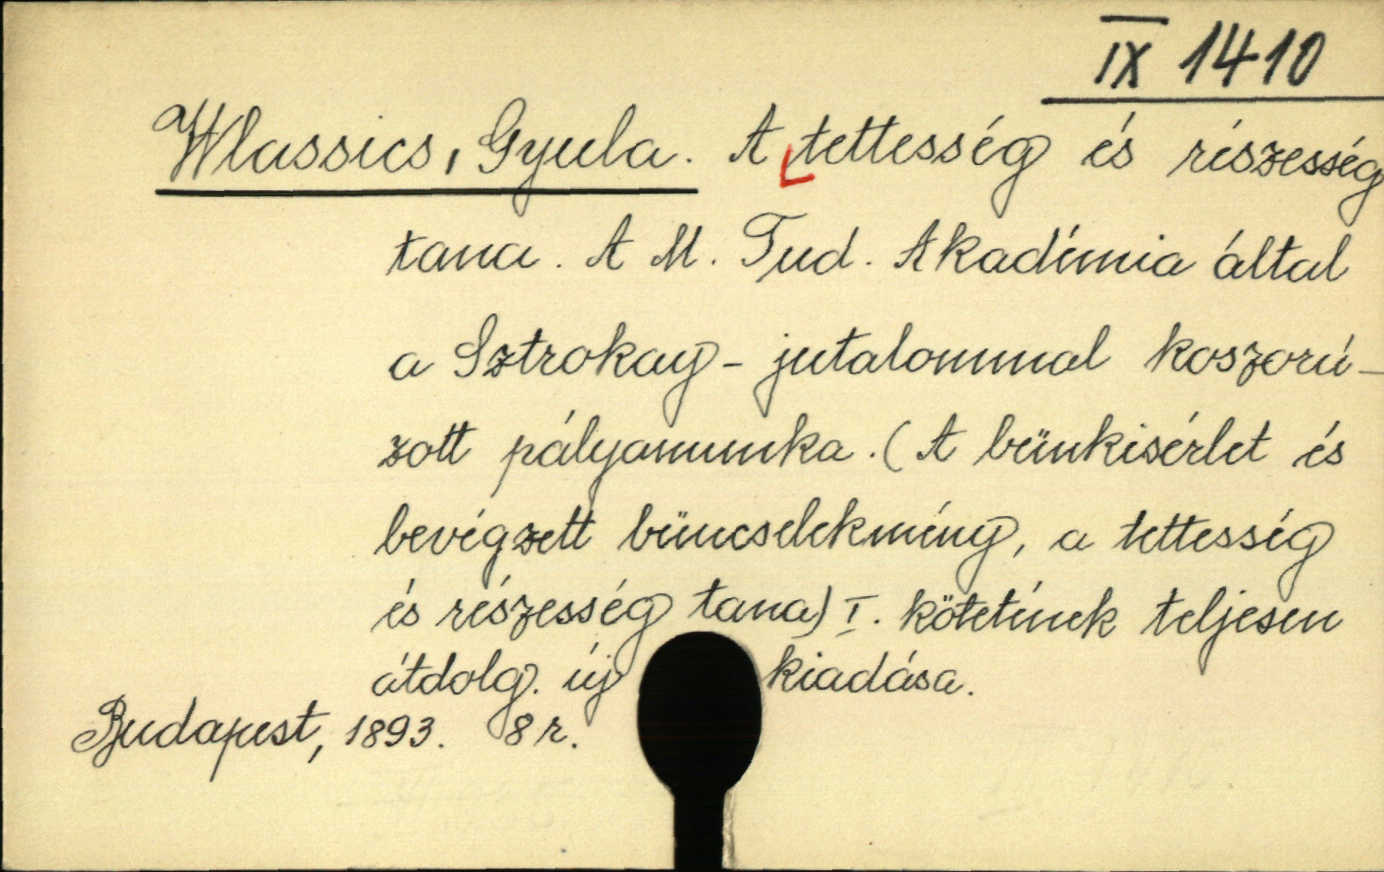 IX 1410
Wlassics, Gyula. A tettesség és részesség
tana. A M. Tud. Akadémia által
a Sztrokay-jutalommal koszorú-
zott pályamunka. (A bünkisérlet és
bevégzett büncselekmény, a tettesség
és részesség tana) I. kötetének teljesen
átdolg. új kiadása.
Budapest, 1893. 8 r.